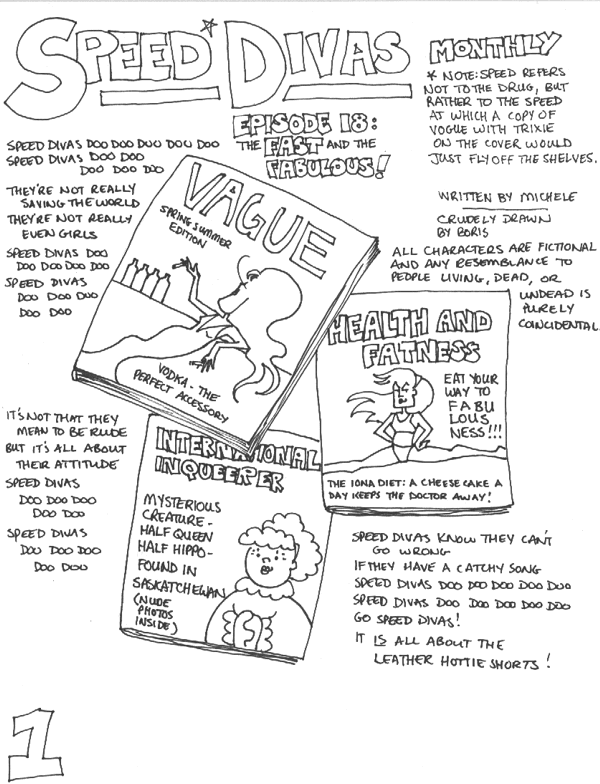 SPEED* DIVAS
MONTHLY
* NOTE: SPEED REFERS
NOT TO THE DRUG, BUT
RATHER TO THE SPEED
AT WHICH A COPY OF
VOGUE WITH TRIXIE
ON THE COVER WOULD
JUST FLY OFF THE SHELVES.
EPISODE 18:
THE FAST AND THE
FABULOUS!
WRITTEN BY MICHELE
CRUDELY DRAWN
BY BORIS
ALL CHARACTERS ARE FICTIONAL
AND ANY RESEMBLANCE TO
PEOPLE LIVING, DEAD, OR
UNDEAD IS
PURELY
COINCIDENTAL.
SPEED DIVAS DOO DOO DOO DOO DOO
SPEED DIVAS DOO DOO
DOO DOO DOO
THEY'RE NOT REALLY
SAVING THE WORLD
THEY'RE NOT REALLY
EVEN GIRLS
SPEED DIVAS DOO
DOO DOO DOO DOO
SPEED DIVAS
DOO DOO DOO
DOO DOO
VAGUE
SPRING SUMMER
EDITION
VODKA - THE
PERFECT ACCESSORY
HEALTH AND
FATNESS
EAT YOUR
WAY TO
FABU
LOUS
NESS!!!
THE IONA DIET: A CHEESECAKE A
DAY KEEPS THE DOCTOR AWAY!
IT'S NOT THAT THEY
MEAN TO BE RUDE
BUT IT'S ALL ABOUT
THEIR ATTITUDE
SPEED DIVAS
DOO DOO DOO
DOO DOO
SPEED DIVAS
DOO DOO DOO
DOO DOO
INTERNATIONAL
INQUEERER
MYSTERIOUS
CREATURE -
HALF QUEEN
HALF HIPPO -
FOUND IN
SASKATCHEWAN
(NUDE
PHOTOS
INSIDE)
SPEED DIVAS KNOW THEY CAN'T
GO WRONG
IF THEY HAVE A CATCHY SONG
SPEED DIVAS DOO DOO DOO DOO DOO
SPEED DIVAS DOO DOO DOO DOO DOO
GO SPEED DIVAS!
IT IS ALL ABOUT THE
LEATHER HOTTIE SHORTS!
1